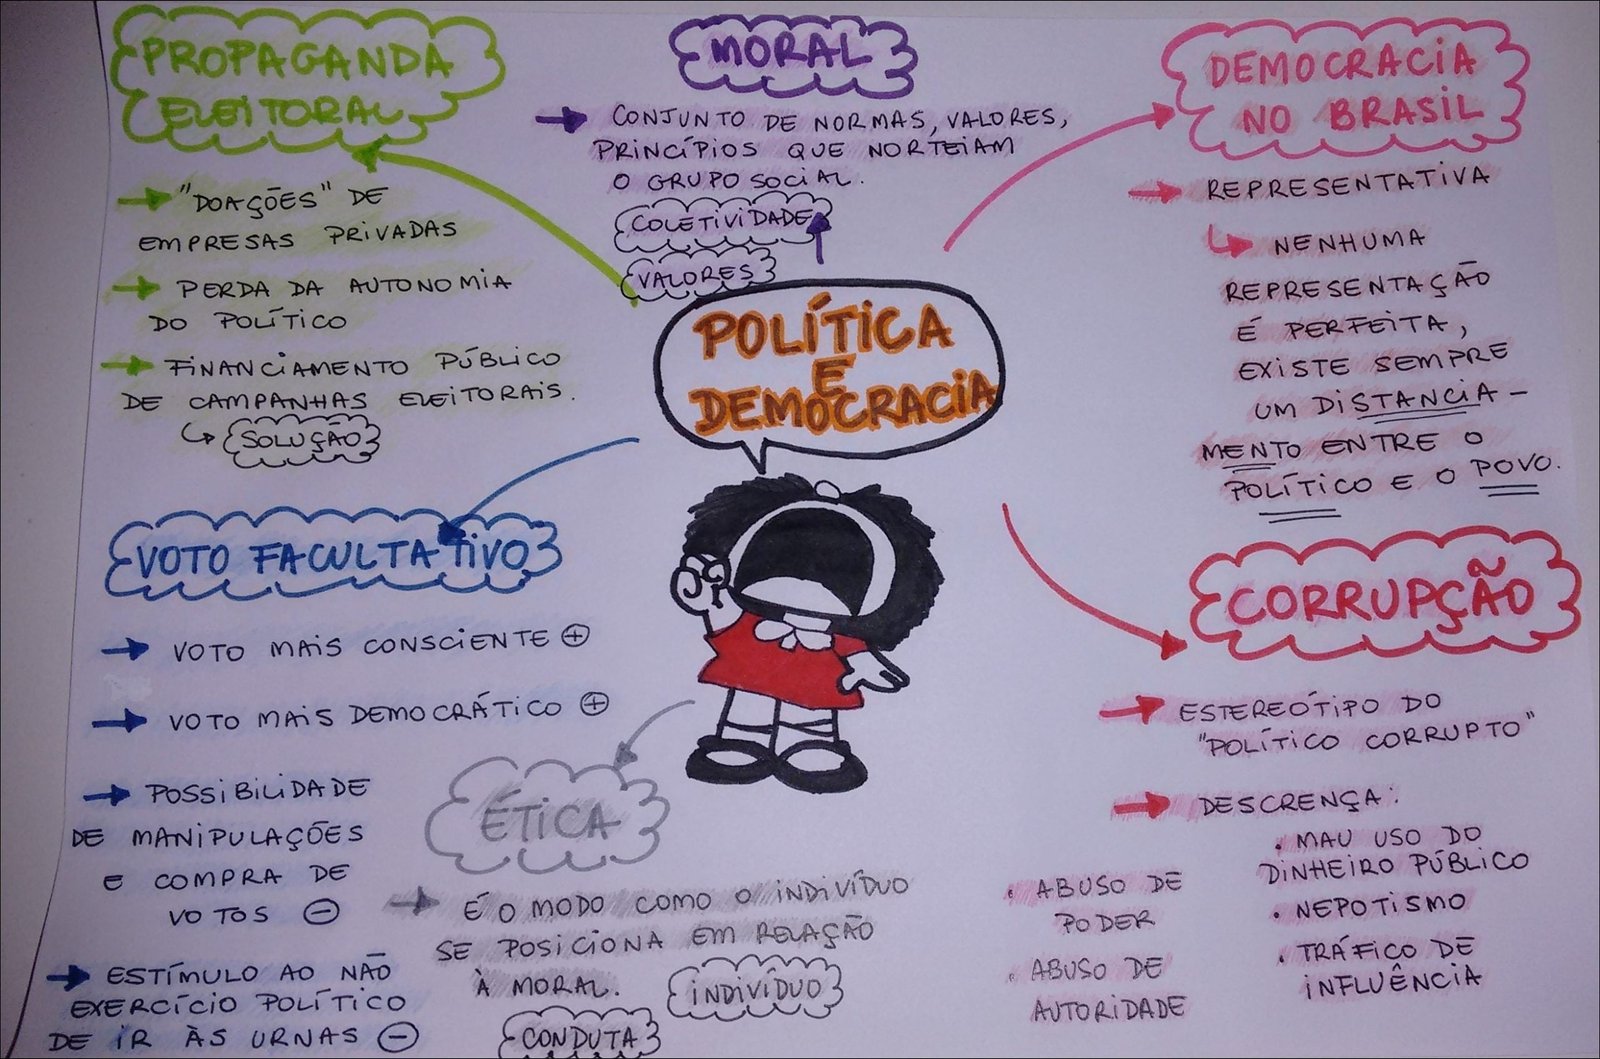 POLÍTICA
E
DEMOCRACIA
PROPAGANDA
ELEITORAL
"DOAÇÕES" DE
EMPRESAS PRIVADAS
PERDA DA AUTONOMIA
DO POLÍTICO
FINANCIAMENTO PÚBLICO
DE CAMPANHAS ELEITORAIS.
SOLUÇÃO
MORAL
CONJUNTO DE NORMAS, VALORES,
PRINCÍPIOS QUE NORTEIAM
O GRUPO SOCIAL.
COLETIVIDADE
VALORES
DEMOCRACIA
NO BRASIL
REPRESENTATIVA
NENHUMA
REPRESENTAÇÃO
É PERFEITA,
EXISTE SEMPRE
UM DISTANCIA-
MENTO ENTRE O
POLÍTICO E O POVO.
VOTO FACULTATIVO
VOTO MAIS CONSCIENTE +
VOTO MAIS DEMOCRÁTICO +
POSSIBILIDADE
DE MANIPULAÇÕES
E COMPRA DE
VOTOS -
ESTÍMULO AO NÃO
EXERCÍCIO POLÍTICO
DE IR ÀS URNAS -
ÉTICA
É O MODO COMO O INDIVÍDUO
SE POSICIONA EM RELAÇÃO
À MORAL.
INDIVÍDUO
CONDUTA
CORRUPÇÃO
ESTEREÓTIPO DO
"POLÍTICO CORRUPTO"
DESCRENÇA:
. MAU USO DO
DINHEIRO PÚBLICO
. NEPOTISMO
. TRÁFICO DE
INFLUÊNCIA
. ABUSO DE
PODER
. ABUSO DE
AUTORIDADE